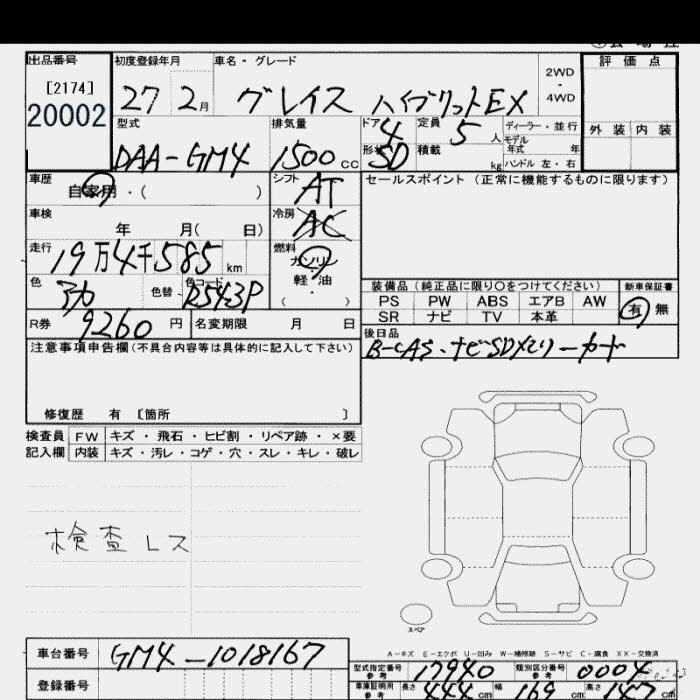 出品番号 初度登録年月 車名・グレード 評価点
[2174]
20002
27 2月 グレイス ハイブリットEX 2WD・4WD
型式 排気量 ドア 4 定員 5人 ディーラー・並行 外装 内装
モデル年式 年
DAA-GM4 1500cc 形状 SD 積載 kg ハンドル 左・右
車歴 自家用・( ) シフト AT セールスポイント (正常に機能するものに限ります)
車検 年 月( 日) 冷房 AC
走行 19万4千585km 燃料 ガソリン
軽・油
( ・ )
色 アカ 色替 色コード R543P
装備品 (純正品に限り〇をつけてください) 新車保証書
PS PW ABS エアB AW 有 無
SR ナビ TV 本革
R券 9260円 名変期限 月 日
後日品
B-CAS・ナビSDメモリーカード
注意事項申告欄(不具合内容等は具体的に記入して下さい)
修復歴 有 [箇所 ]
検査員 FW キズ・飛石・ヒビ割・リペア跡・×要
記入欄 内装 キズ・汚レ・コゲ・穴・スレ・キレ・破レ
検査レス
スペア
A-キズ E-エクボ U-凹み W-補修跡 S-サビ C-腐食 XX-交換済
車台番号 GM4-1018167
型式指定番号 参考 17940 類別区分番号 参考 0004
登録番号
車庫証明用 参考 長さ 444cm 幅 169cm 高さ cm